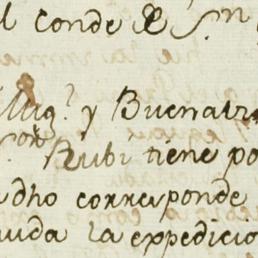 l conde de Sn
Muq.l y Buenavra
Sor Rubi tiene po
dho corresponde
uda la expedicio